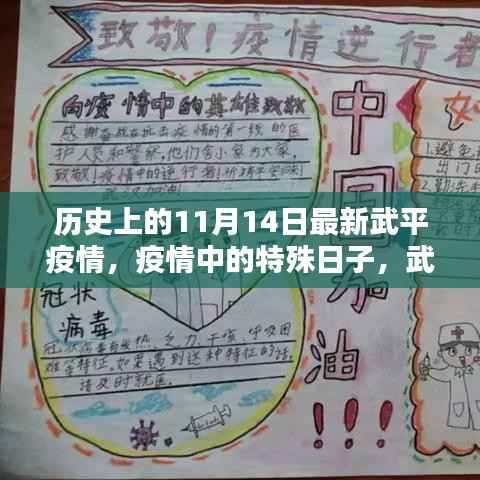 致敬！疫情逆行者
向疫情中的英雄致敬
感谢奋战在抗击疫情的第一线的医
护人员和警察，他们舍小家为大家，
致敬！疫情中的逆行者！
中国加油
!!!
1.避免
出门
2.
历史上的11月14日最新武平
疫情，疫情中的特殊日子，武
冠状
病毒
热、乏力、干咳、呼吸困
难等特征，如果遇到这种特征的话，
请及时就医